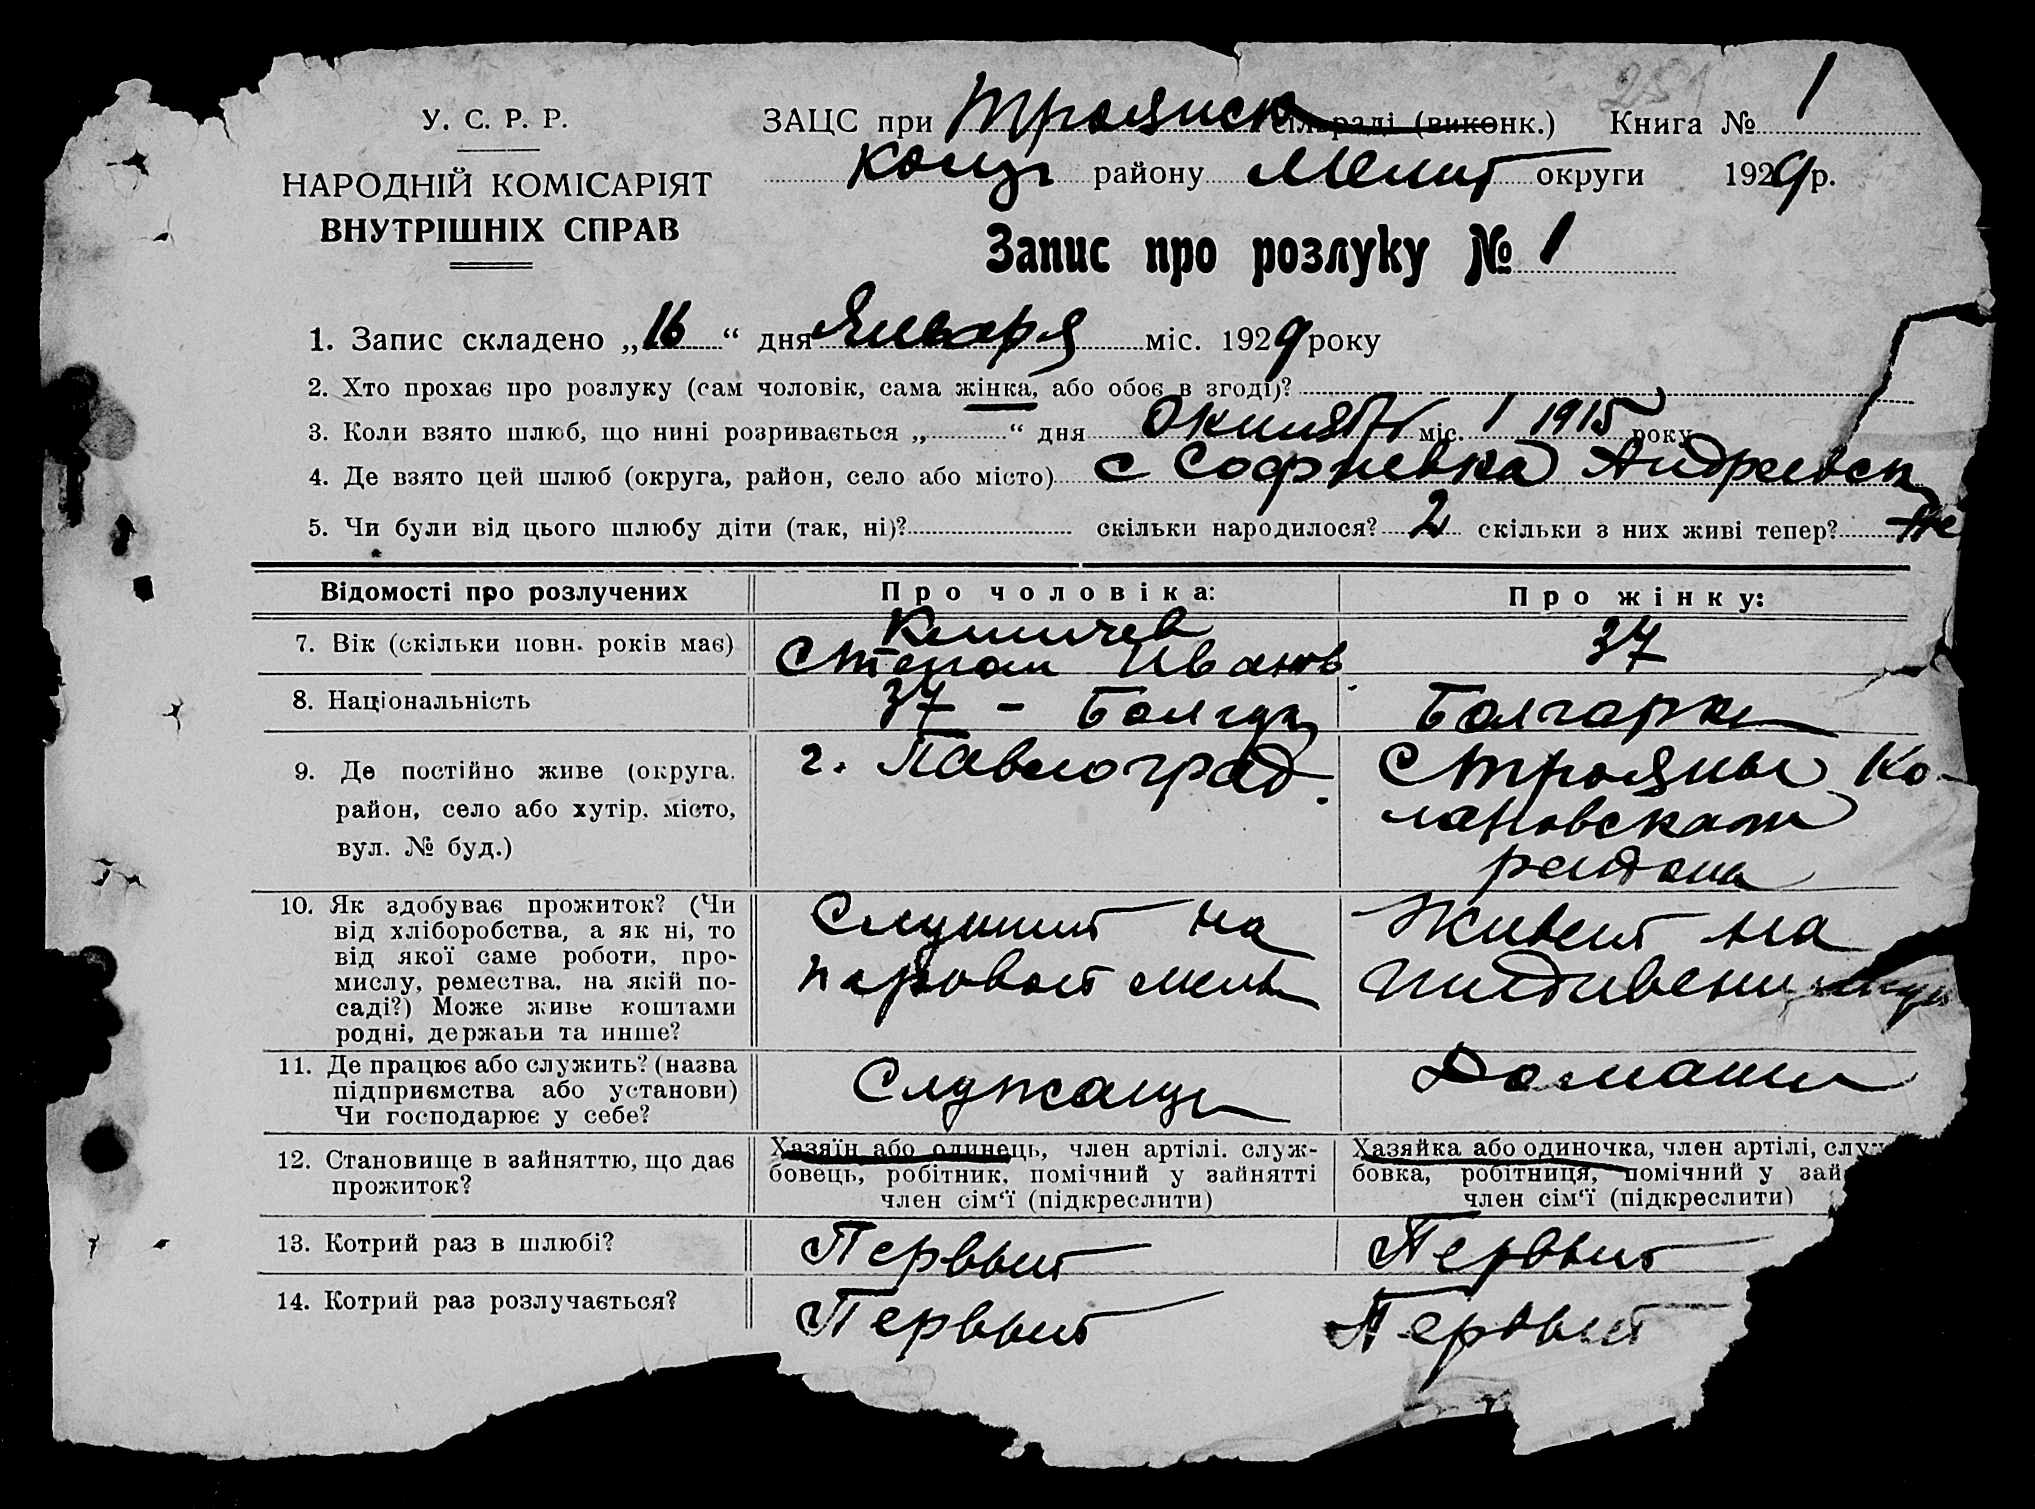 У. С. Р. Р.
НАРОДНІЙ КОМІСАРІЯТ
ВНУТРІШНІХ СПРАВ
ЗАЦС при Троянск сільраді (виконк.) Книга № 1
району Мелит округи 1929 р.
Запис про розлуку № 1
1. Запис складено „16“ дня Января міс. 1929 року
2. Хто прохає про розлуку (сам чоловік, сама жінка, або обоє в згоді)?
3. Коли взято шлюб, що нині розривається „ “ дня Октябр міс. 1 1915 року
4. Де взято цей шлюб (округа, район, село або місто) с Софиевка Андреевск
5. Чи були від цього шлюбу діти (так, ні)? скільки народилося? 2 скільки з них живі тепер?
Відомості про розлучених
Про чоловіка:
Про жінку:
7. Вік (скільки повн. років має)
Степан Иванов
37
8. Національність
37 – Болгар
Болгарка
9. Де постійно живе (округа,
район, село або хутір, місто,
вул. № буд.)
г. Павлоград.
С Трояны Ко-
лановского
района
10. Як здобуває прожиток? (Чи
від хліборобства, а як ні, то
від якої саме роботи, про-
мислу, ремества, на якій по-
саді?) Може живе коштами
родні, держави та инше?
Служит на
паровой мель
Живет на
иждивении
11. Де працює або служить? (назва
підприємства або установи)
Чи господарює у себе?
Служащи
Домашн
12. Становище в зайняттю, що дає
прожиток?
Хазяїн або одинець, член артілі, служ-
бовець, робітник, помічний у зайнятті
член сім‘ї (підкреслити)
Хазяйка або одиночка, член артілі, служ
бовка, робітниця, помічний у зай
член сім‘ї (підкреслити)
13. Котрий раз в шлюбі?
Первый
Первый
14. Котрий раз розлучається?
Первый
Первый